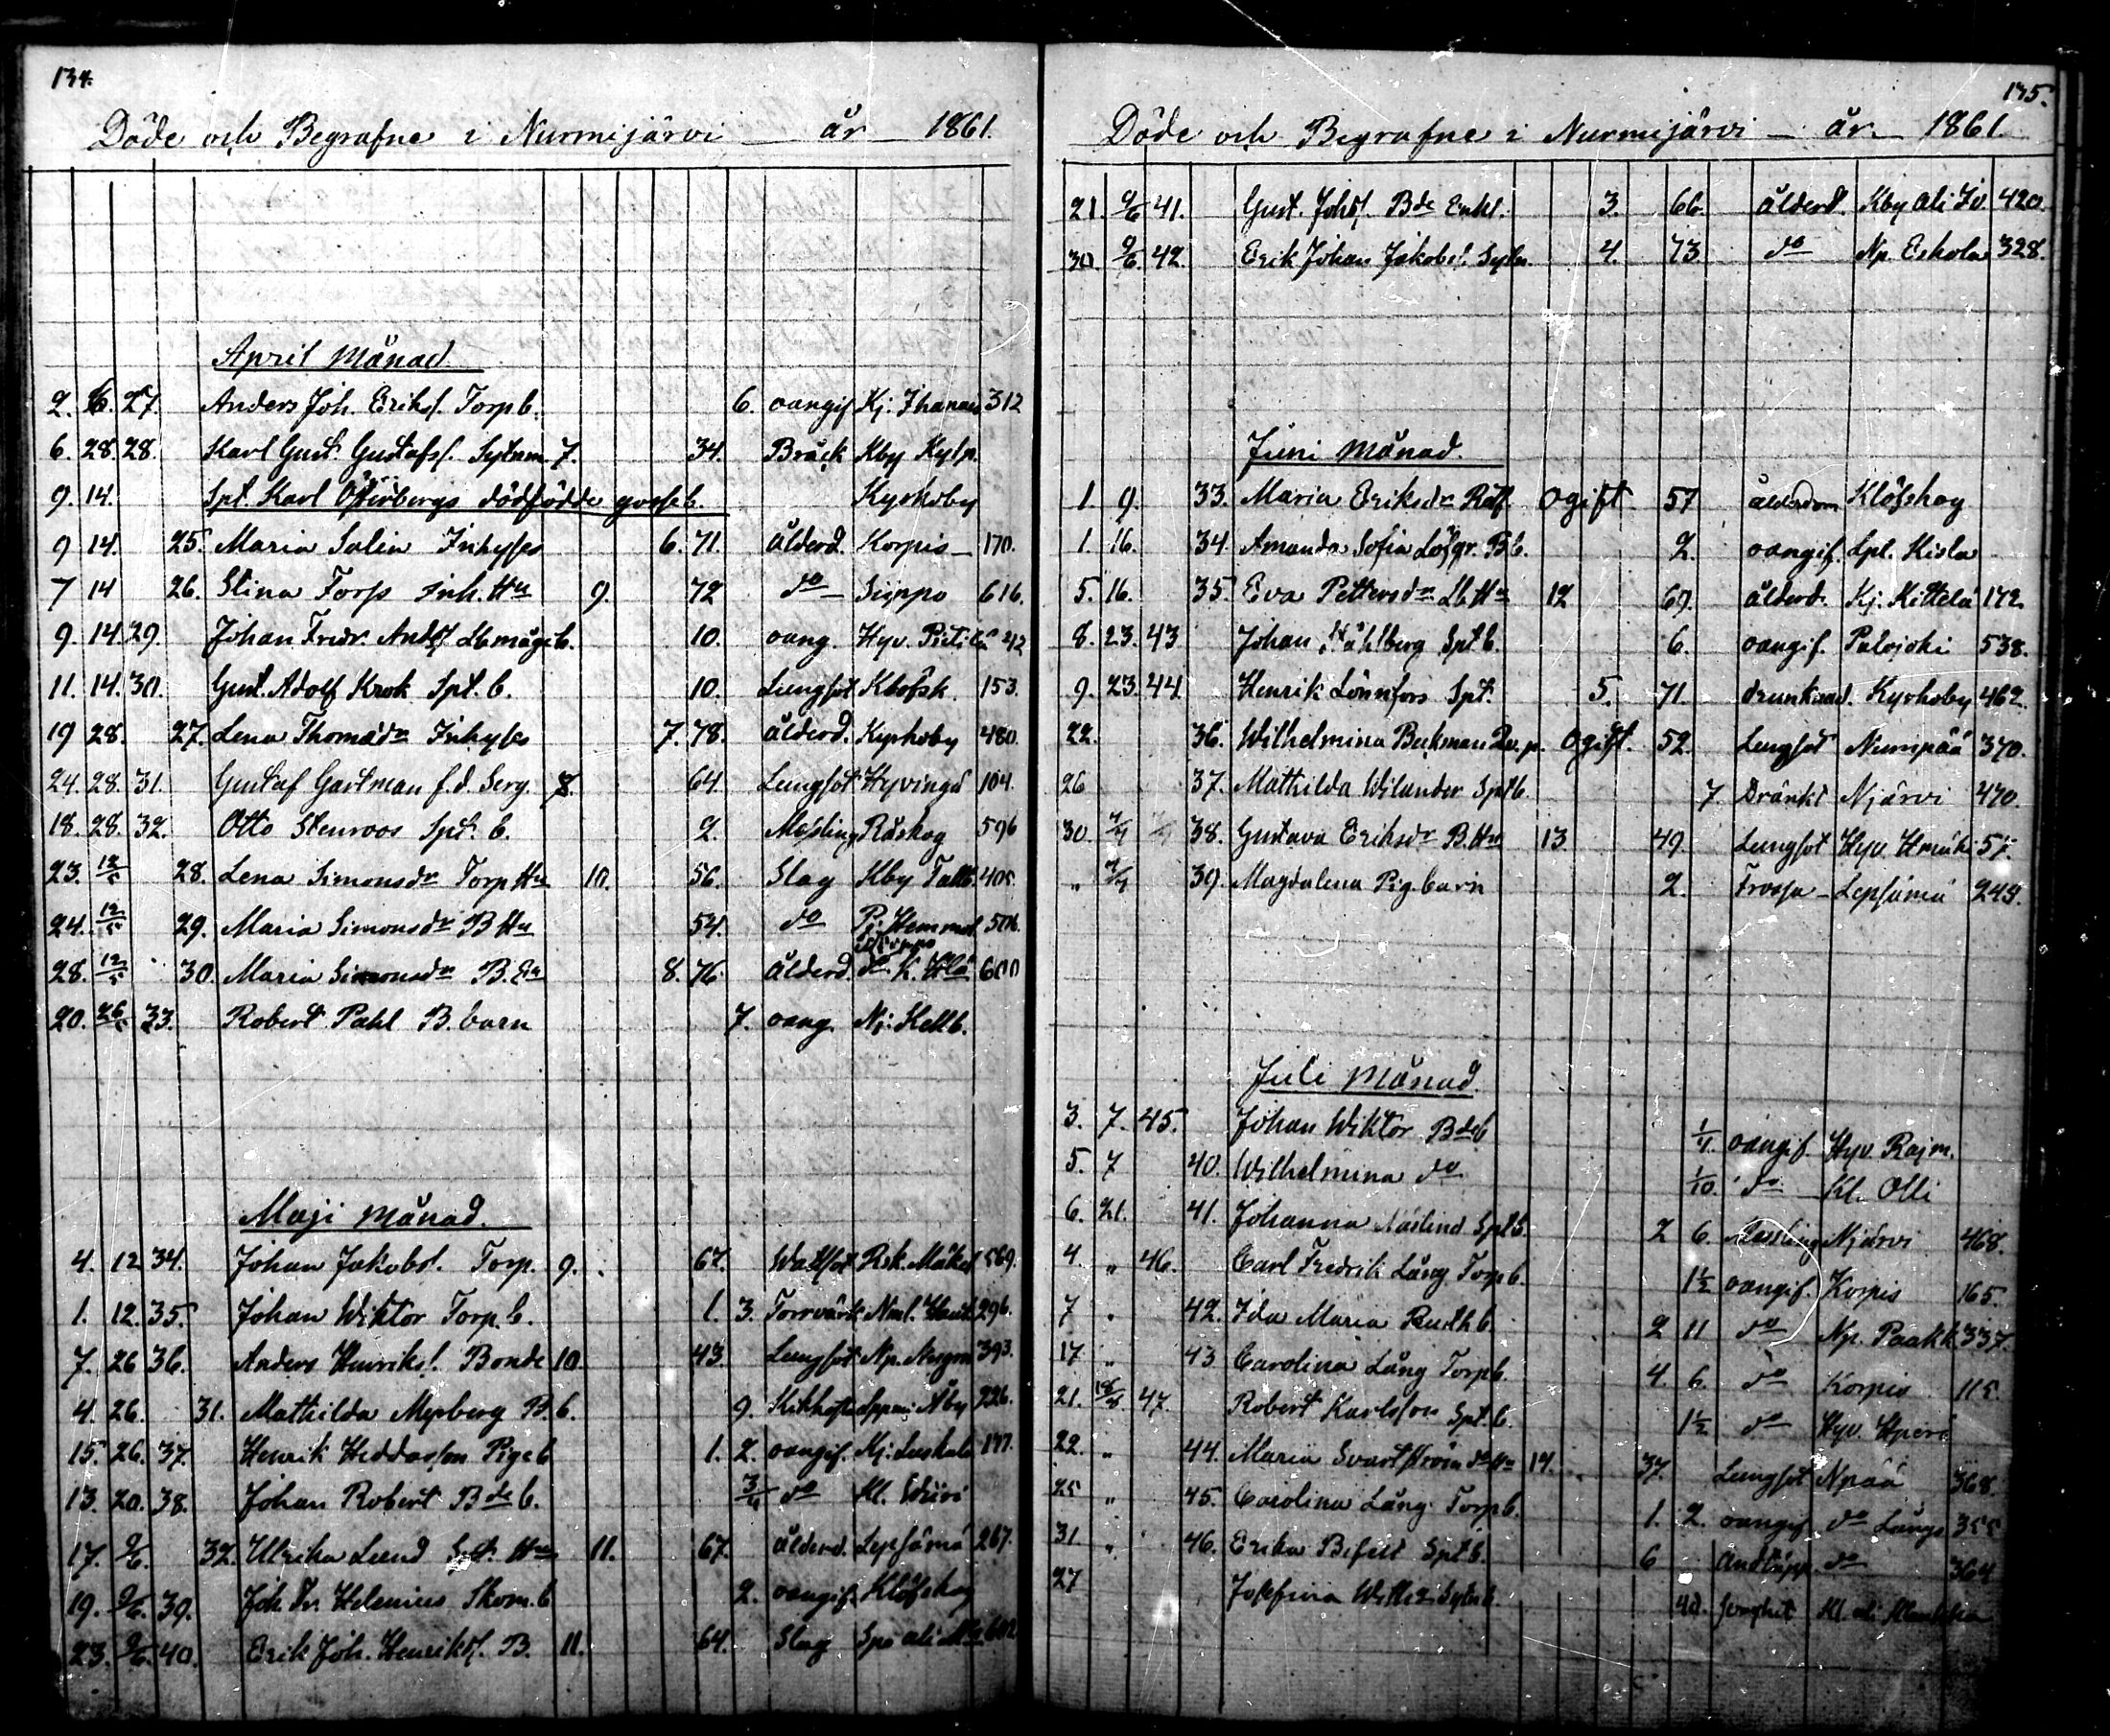 134.
Döde och Begrafne i Nurmijärvi — år — 1861.
April Månad
2. 6. 27. Anders Joh. Eriks. Torp b. 6. oangif Kj. Ihanau 312
6. 28. 28. Karl Gust. Gustafss. Sytnm. 7. 34. Bråck Kby Kylp.
9. 14. Spt. Karl Österbergs dödfödde gosseb. Kyrkoby
9 14. 25. Maria Salin Inhyses 6. 71. ålderd. Korpis 170.
7 14 26. Stina Fors Inh. Hu 9. 72 do Suppo 616.
9. 14. 29. Johan Fredr. Andss Lbmåg b. 10. oang. Hyv. Pietilä 42
11. 14. 30. Gust. Adolf Krok Spt. b. 10. Lungsot Klöfsk. 153.
19 28. 27. Lena Thomasdr Inhyses 7. 78. ålderd. Kyrkoby 480.
24. 28. 31. Gustaf Gartman f.d. Serg. 8. 64. Lungsot Hyvinge 104.
18. 28. 32. Otto Stenroos Spt. b. 2. Mäsling Råskog 596
23. 12/5 28. Lena Simonsdr Torp Hu 10. 56. Slag Kby Talb. 405.
24. 12/5 29. Maria Simonsdr B Hu 54. do Pj. Hemmol. 506.
28. 12/5 30. Maria Simonsdr B. En 8. 76. ålderd. do K. 600
20. 26/5 33. Robert Pahl B. barn 7. oang. Nj. Kellb.
Maji Månad.
4. 12 34. Johan Jakobs. Torp. 9. 67. Wattsot Rsk. Mäkel 569.
1. 12. 35. Johan Wiktor Torp. b. 1. 3. Torrvärk 296.
7. 26 36. Anders Henriks. Bonde 10. 43. Lungsot Np. 393.
4. 26. 31. Mathilda Myrberg B. b. 9. Kikhosta Åby 226.
15. 26. 37. Henrik Heddasson Pige b 1. 2. oangif. Kj. 177.
13. 20. 38. Johan Robert Bde b. 3/4 do Kl.
17. 2/6. 32. Ulrika Lund Spt. Hu 11. 67. ålderd. Lepsämä 267.
19. 2/6. 39. Joh. Fr. Helenius Skom. b 2. oangif. Klöfskog
23. 2/6. 40. Erik Joh. Henrikss. B. 11. 64. Slag Spo ali 602
135.
Döde och Begrafne i Nurmijärvi — år — 1861.
21. 2/6 41. Gust. Johss. Bde Enkl. 3. 66. ålderd. Kby ali 420.
30. 2/6. 42. Erik Johan Jakobss. Sytn. 4. 73 do Np. Eskola 328.
Juni Månad.
1. 9. 33. Maria Eriksdr Rötf. Ogift 57 ålderdom Klöfskog
1. 16. 34. Amanda Sofia Löfgr. B b. 2. oangif. Spl. Kisla
5. 16. 35. Eva Pettersdr Lb Hu 12 69. ålderd. Kj. Kittelä 172.
8. 23. 43 Johan Ståhlberg Spt b. 6. oangif. Palojoki 538.
9. 23. 44. Henrik Lönnfors Spt. 5. 71. drunknad. Kyrkoby 462.
22. 36. Wilhelmina Beckman Qu.p. Ogift. 52. Lungsot Numpää 370.
26 37. Mathilda Wilander Spt b. 7 Dränkt Njärvi 470.
30. 7/7 38. Gustava Eriksdr B. Hu 13. 49. Lungsot Hyv. 57.
" 7/7 39. Magdalena Pig. barn 2. Frossa Lepsämä 249.
Juli Månad.
3. 7. 45. Johan Wiktor Bde b 1/4. oangif. Hyv. Rajm.
5. 7 40. Wilhelmina do 1/10. do Kl. Olli
6. 21. 41. Johanna Näslind Spt b. 2 6. Mässling Njärvi 468.
4. " 46. Carl Fredrik Lång Torp b. 1½ oangif. Korpis 165.
7 " 42. Ida Maria b. 2 11 do Np. Paakk. 337.
17 " 43 Carolina Lång Torp b. 4. 6. do Korpis 115.
21. 18/8 47. Robert Karlsson Spt. b. 1½ do Hyv.
22. " 44. Maria Svartström do Hu 14. 37. Lungsot Npää 368.
25 " 45. Carolina Lång Torp b. 1. 2. oangif. do Långs 355
31. " 46. Erika Befelt Spt b. 6 Andtäpp. do 364
27 Josefina Sytn b. Kl. ali